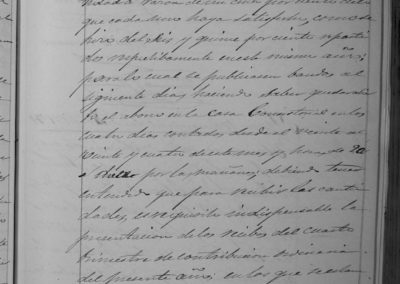 que cada uno haya satisfecho, como se
hizo del diez y quince por ciento reparti
dos repetidamente en este mismo año;
para lo cual se publicaran bandos al
siguiente dia, haciendo saber queda
el abono en la Casa Consistorial en los
cuatro dias contados desde el veinte al
veinte y cuatro de este mes y horas de
por la mañana; debiendo tener
entendido que para recibir las canti
dades, es requisito indispensable la
presentacion de los recibos del cuarto
trimestre de contribucion ordinaria
del presente año; en los que